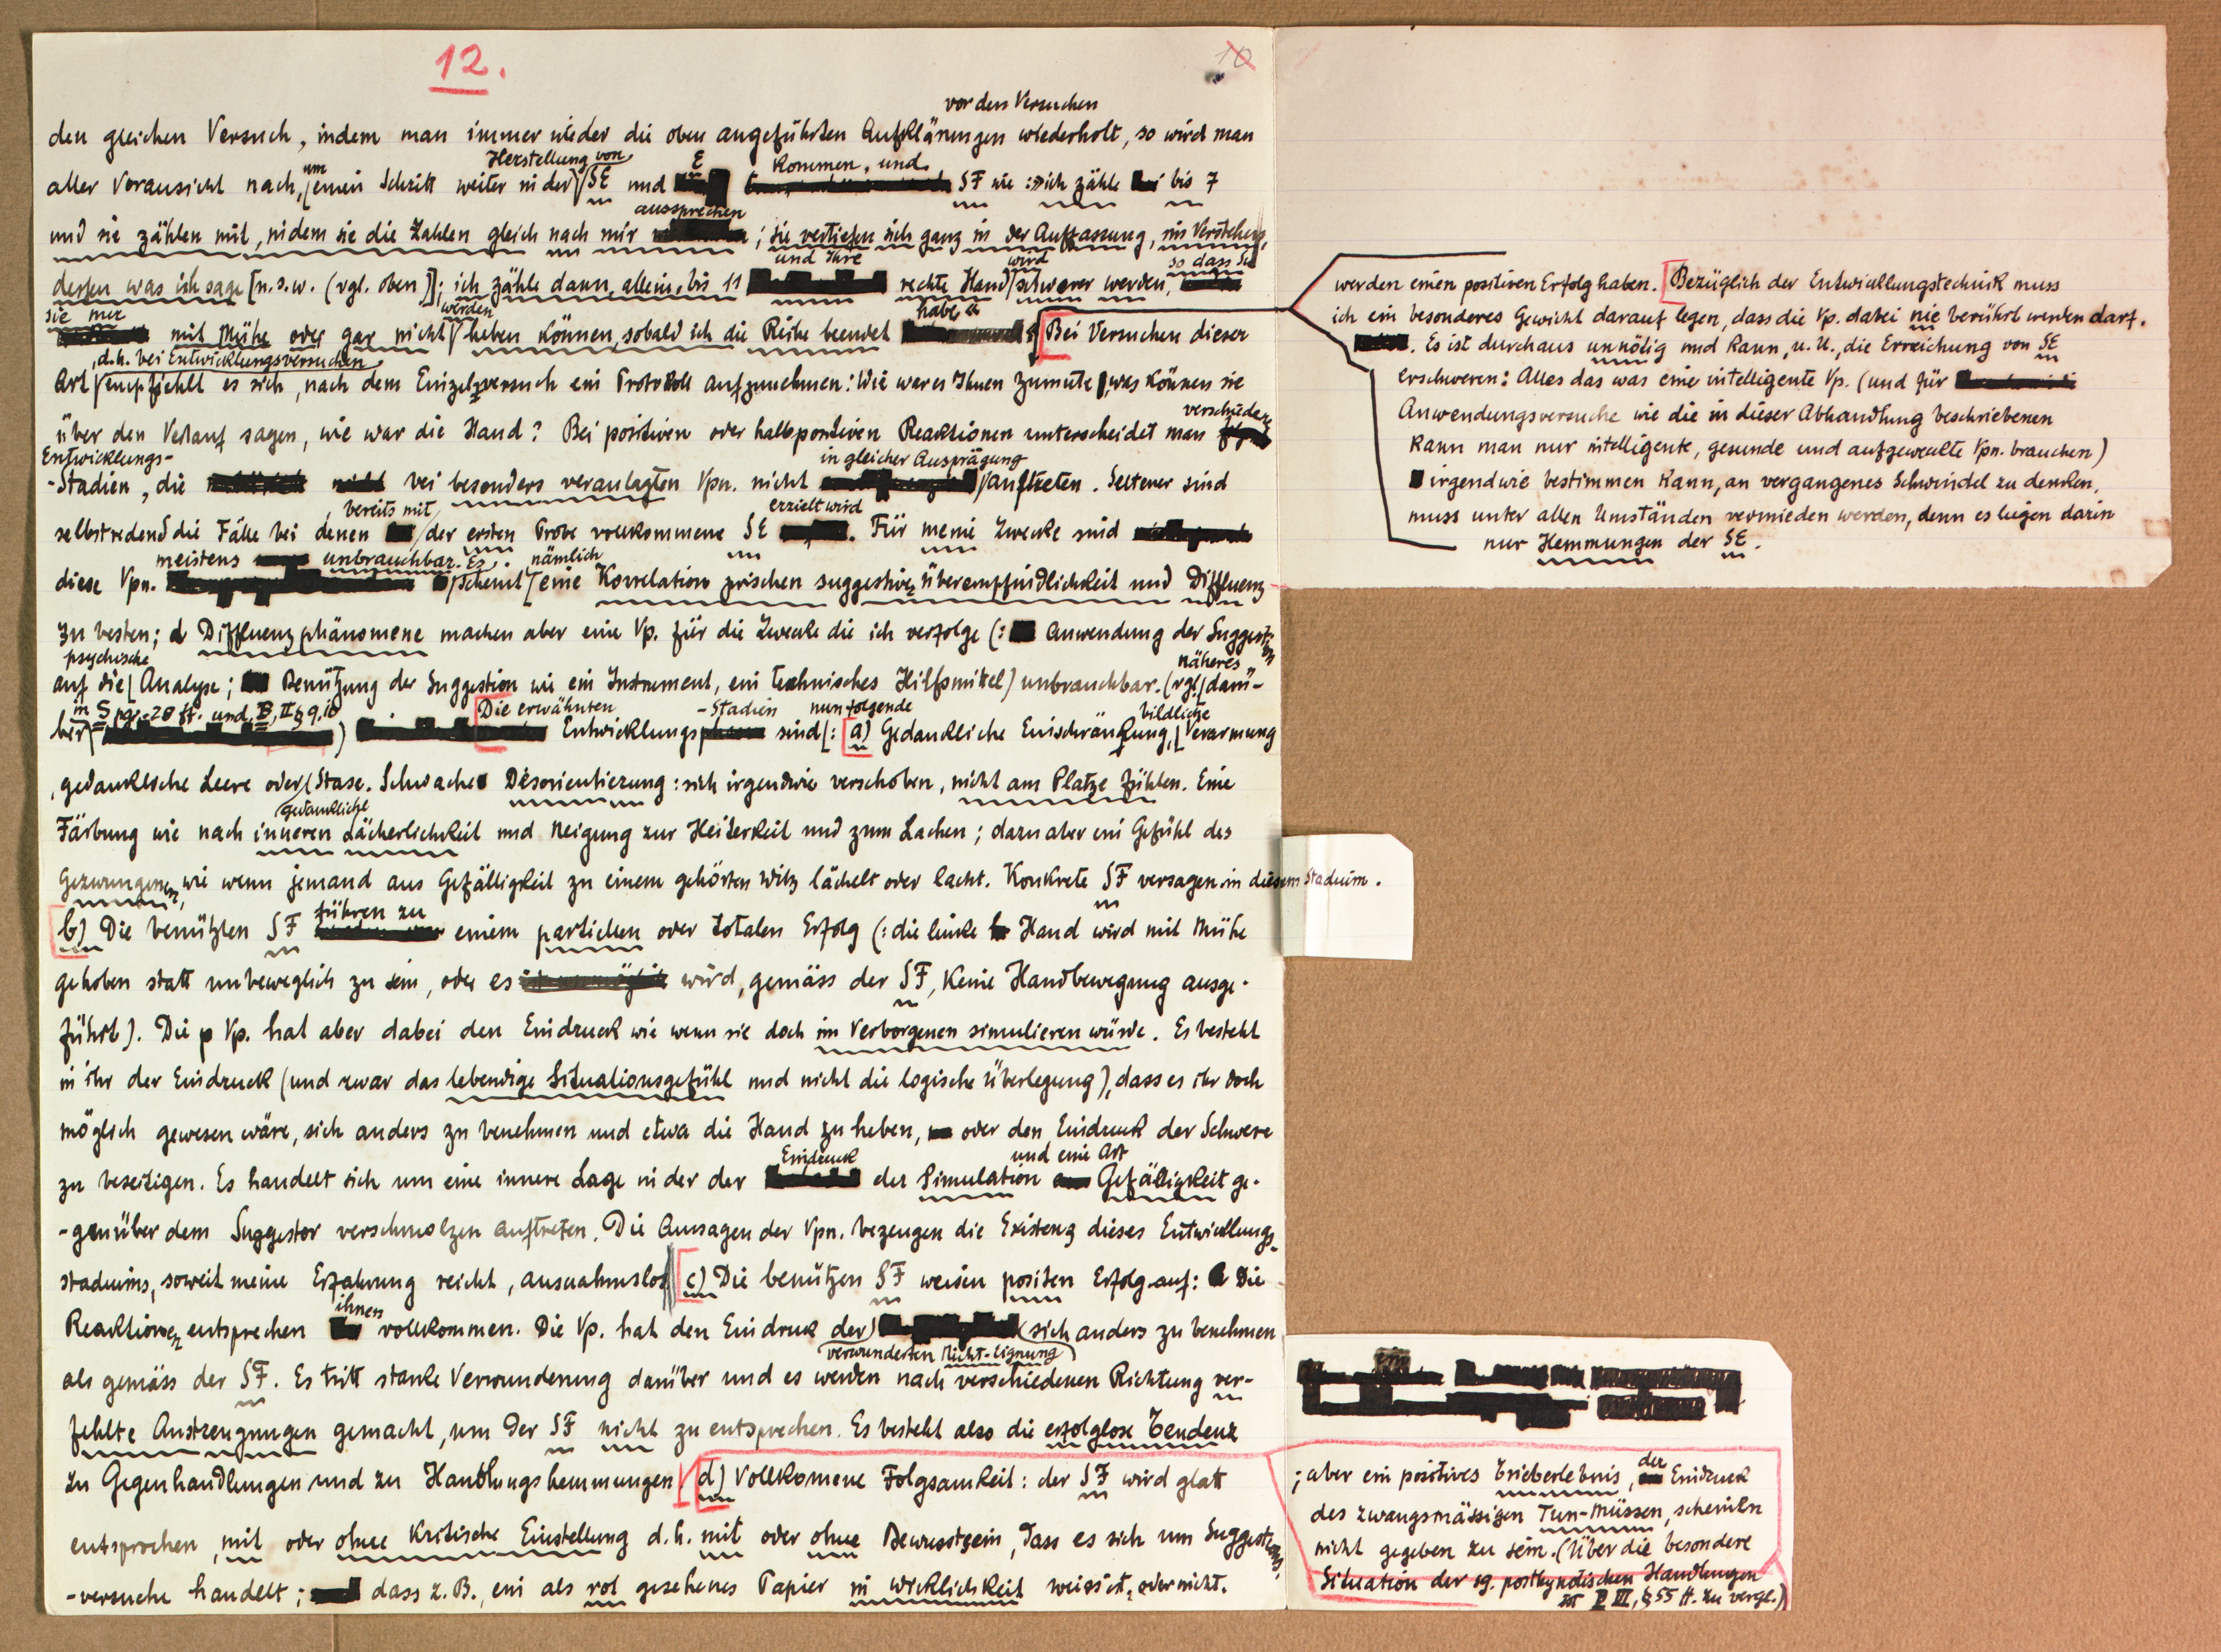 12.
10
vor den Versuchen
den gleichen Versuch, indem man immer wieder die oben angeführten Aufklärungen wiederholt, so wird man
um Herstellung von E kommen, und
aller Voraussicht nach, einen Schritt weiter in der SE und SF wie: »ich zähle bis 7
aussprechen
und sie zählen mit, indem sie die Zahlen gleich nach mir ; sie vertiefen sich ganz in der Auffassung, ins Verstehen,
und Ihre wird so dass Sie
dessen was ich sage [u.s.w. (vgl. oben)]; ich zähle dann, allein, bis 11 rechte Hand schwerer werden,
sie nur werden habe«
mit Mühe oder gar nicht heben können, sobald ich die Reihe beendet Bei Versuchen dieser
, d.h. bei Entwicklungsversuchen
Art empfiehlt es sich, nach dem Einzelversuch ein Protokoll aufzunehmen: Wie war es Ihnen zumute, was können sie
verschiedene
über den Verlauf sagen, wie war die Hand? Bei positiven oder halbpositiven Reaktionen unterscheidet man
Entwicklungs- in gleicher Ausprägung
-Stadien, die bei besonders veranlagten Vpn. nicht auftreten. Seltener sind
bereits mit erzielt wird
selbstredend die Fälle bei denen der ersten Probe vollkommene SE . Für meine Zwecke sind
meistens unbrauchbar. Es nämlich
diese Vpn. scheint eine Korrelation zwischen suggestiver Überempfindlichkeit und Diffluenz
zu besten; d Diffluenzphänomene machen aber eine Vp. für die Zwecke die ich verfolge (: Anwendung der Suggestion
psychische näheres
auf die Analyse; Benützung der Suggestion wie ein Instrument, ein technisches Hilfsmittel) unbrauchbar. (vgl. darü-
in S pgr. 28 ff. und B, II § 9, 10 Die erwähnten -Stadien nun folgende bildliche
ber ) Entwicklungs sind : a) Gedankliche Einschränkung, Verarmung
, gedankliche Leere oder Stase. Schwache Desorientierung: sich irgendwie verschoben, nicht am Platze fühlen. Eine
gedankliche
Färbung wie nach inneren Lächerlichkeit und Neigung zur Heiterkeit und zum Lachen; dazu aber ein Gefühl des
Gezwungenen, wie wenn jemand aus Gefälligkeit zu einem gehörten Witz lächelt oder lacht. Konkrete SF versagen in diesem Stadium.
führen zu
b) Die benützten SF einem partiellen oder totalen Erfolg (: die linke Hand wird mit Mühe
gehoben statt unbeweglich zu sein, oder es wird, gemäss der SF, keine Handbewegung ausge-
führt). Die p Vp. hat aber dabei den Eindruck wie wenn sie doch im Verborgenen simulieren würde. Es besteht
in ihr der Eindruck (und zwar das lebendige Situationsgefühl und nicht die logische Überlegung), dass es ihr doch
möglich gewesen wäre, sich anders zu benehmen und etwa die Hand zu heben, oder den Eindruck der Schwere
Eindruck und eine Art
zu beseitigen. Es handelt sich um eine innere Lage in der der der Simulation Gefälligkeit ge-
-genüber dem Suggestor verschmolzen auftreten. Die Aussagen der Vpn. bezeugen die Existenz dieses Entwicklungs-
stadiums, soweit meine Erfahrung reicht, ausnahmslos c) Die benützen SF weisen positen Erfolg auf: Die
ihnen
Reaktionen entsprechen vollkommen. Die Vp. hat den Eindruck der sich anders zu benehmen
verwunderten Nicht-Eignung
als gemäss der SF. Es tritt starke Verwunderung darüber und es werden nach verschiedenen Richtung ver-
fehlte Anstrengungen gemacht, um der SF nicht zu entsprechen. Es besteht also die erfolglose Tendenz
zu Gegenhandlungen und zu Handlungshemmungen d) Vollkomene Folgsamkeit: der SF wird glatt
entsprochen, mit oder ohne kritische Einstellung d.h. mit oder ohne Bewusstsein, dass es sich um Suggestions-
-versuche handelt; dass z.B., ein als rot gesehenes Papier in Wirklichkeit weiss ist, oder nicht.
werden einen positiven Erfolg haben. Bezüglich der Entwicklungstechnik muss
ich ein besonderes Gewicht darauf legen, dass die Vp. dabei nie berührt werden darf.
. Es ist durchaus unnötig und kann, u. U., die Erreichung von SE
erschweren: Alles das was eine intelligente Vp. (und für
Anwendungsversuche wie die in dieser Abhandlung beschriebenen
kann man nur intelligente, gesunde und aufgeweckte Vpn. brauchen)
irgendwie bestimmen kann, an vergangenes Schwindel zu denken,
muss unter allen Umständen vermieden werden, denn es liegen darin
nur Hemmungen der SE.
ein
der
; aber ein positives Trieberlebnis, Eindruck
des zwangsmässigen Tun-Müssen, scheinen
nicht gegeben zu sein. (Über die besondere
Situation der sg. posthypnotischen Handlungen
III, § 55 ff. zu vergl.)